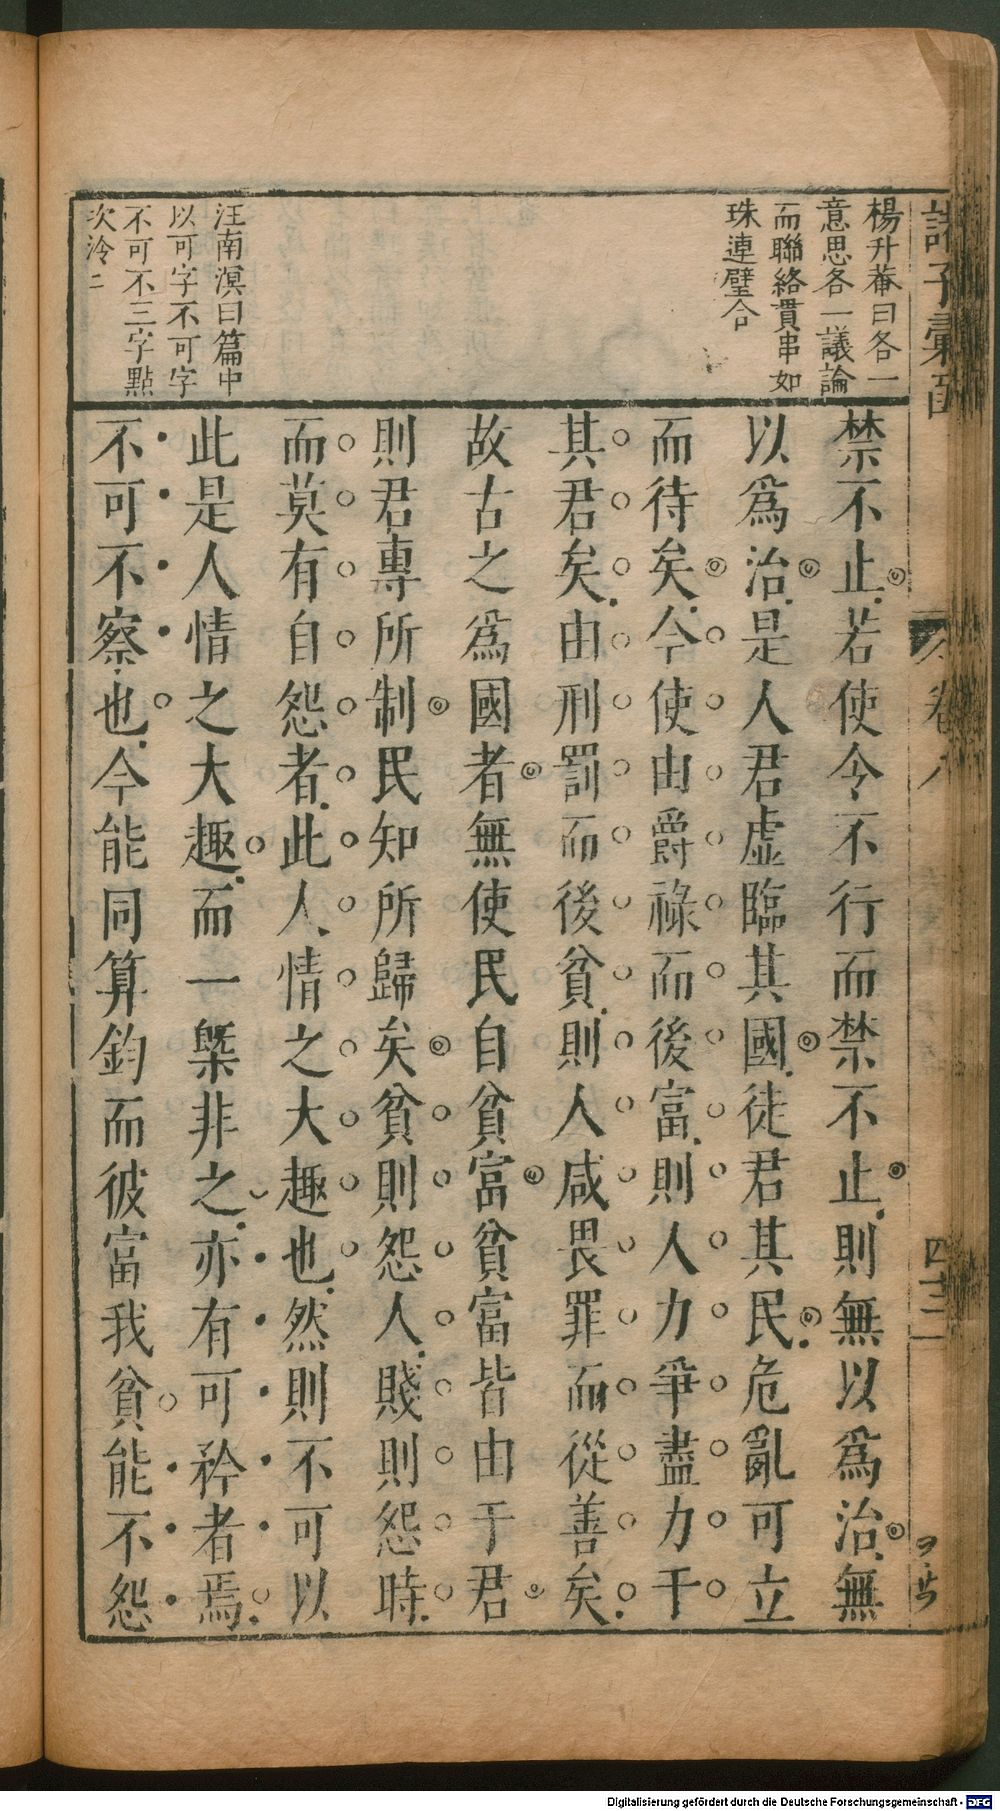 楊升菴曰各一
意思各一議論
而聯絡貫串如
珠連璧合
汪南溟曰篇中
以可字不可字
不可不三字點
次冷二
禁不止若使令不行而禁不止則無以為治無
以為治是人君虛臨其國徒君其民危亂可立
而待矣今使由爵祿而後富則人力爭盡力于
其君矣由刑罰而後貧則人咸畏罪而從善矣
故古之為國者無使民自貧富貧富皆由于君
則君專所制民知所歸矣貧則怨人賤則怨時
而莫有自怨者此人情之大趣也然則不可以
此是人情之大趣而一槩非之亦有可矜者焉
不可不察也今能同算鈞而彼富我貧能不怨
卷八
Digitalisierung gefördert durch die Deutsche Forschungsgemeinschaft - DFG